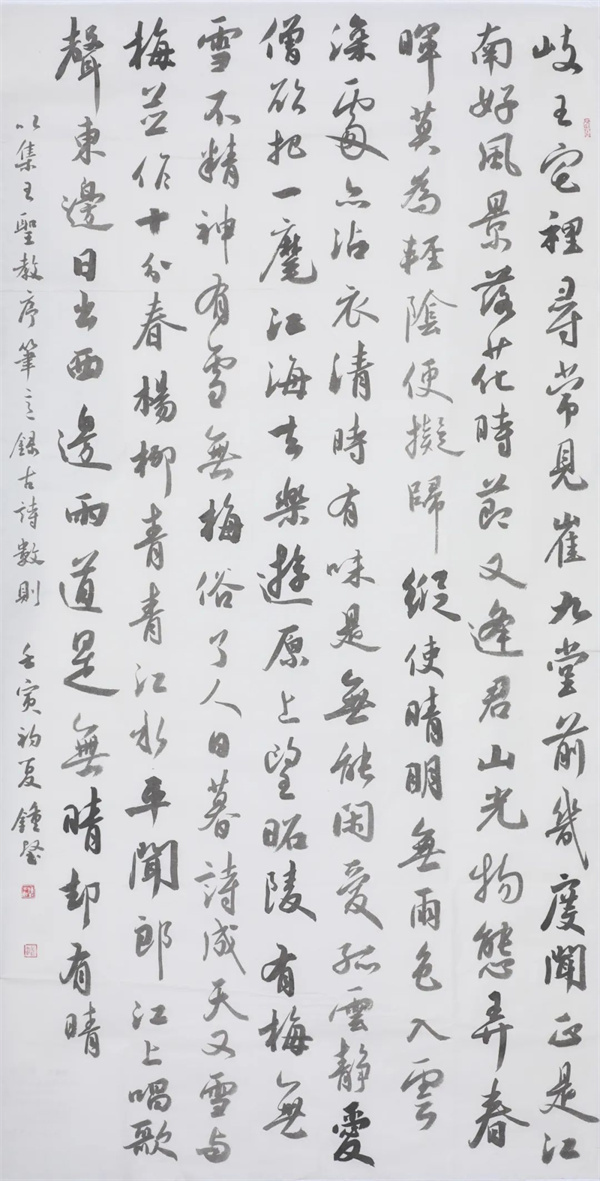 岐王宅裡尋常見崔九堂前幾度聞正是江
南好風景落花時節又逢君山光物態弄春
暉莫為輕陰便擬歸縱使晴明無雨色入雲
深處亦沾衣清時有味是無能閑愛孤雲靜愛
僧欲把一麾江海去樂遊原上望昭陵有梅無
雪不精神有雪無梅俗了人日暮詩成天又雪与
梅並作十分春楊柳青青江水平聞郎江上唱歌
聲東邊日出西邊雨道是無晴却有晴
以集王聖教序筆意錄古詩數則 壬寅初夏 鍾